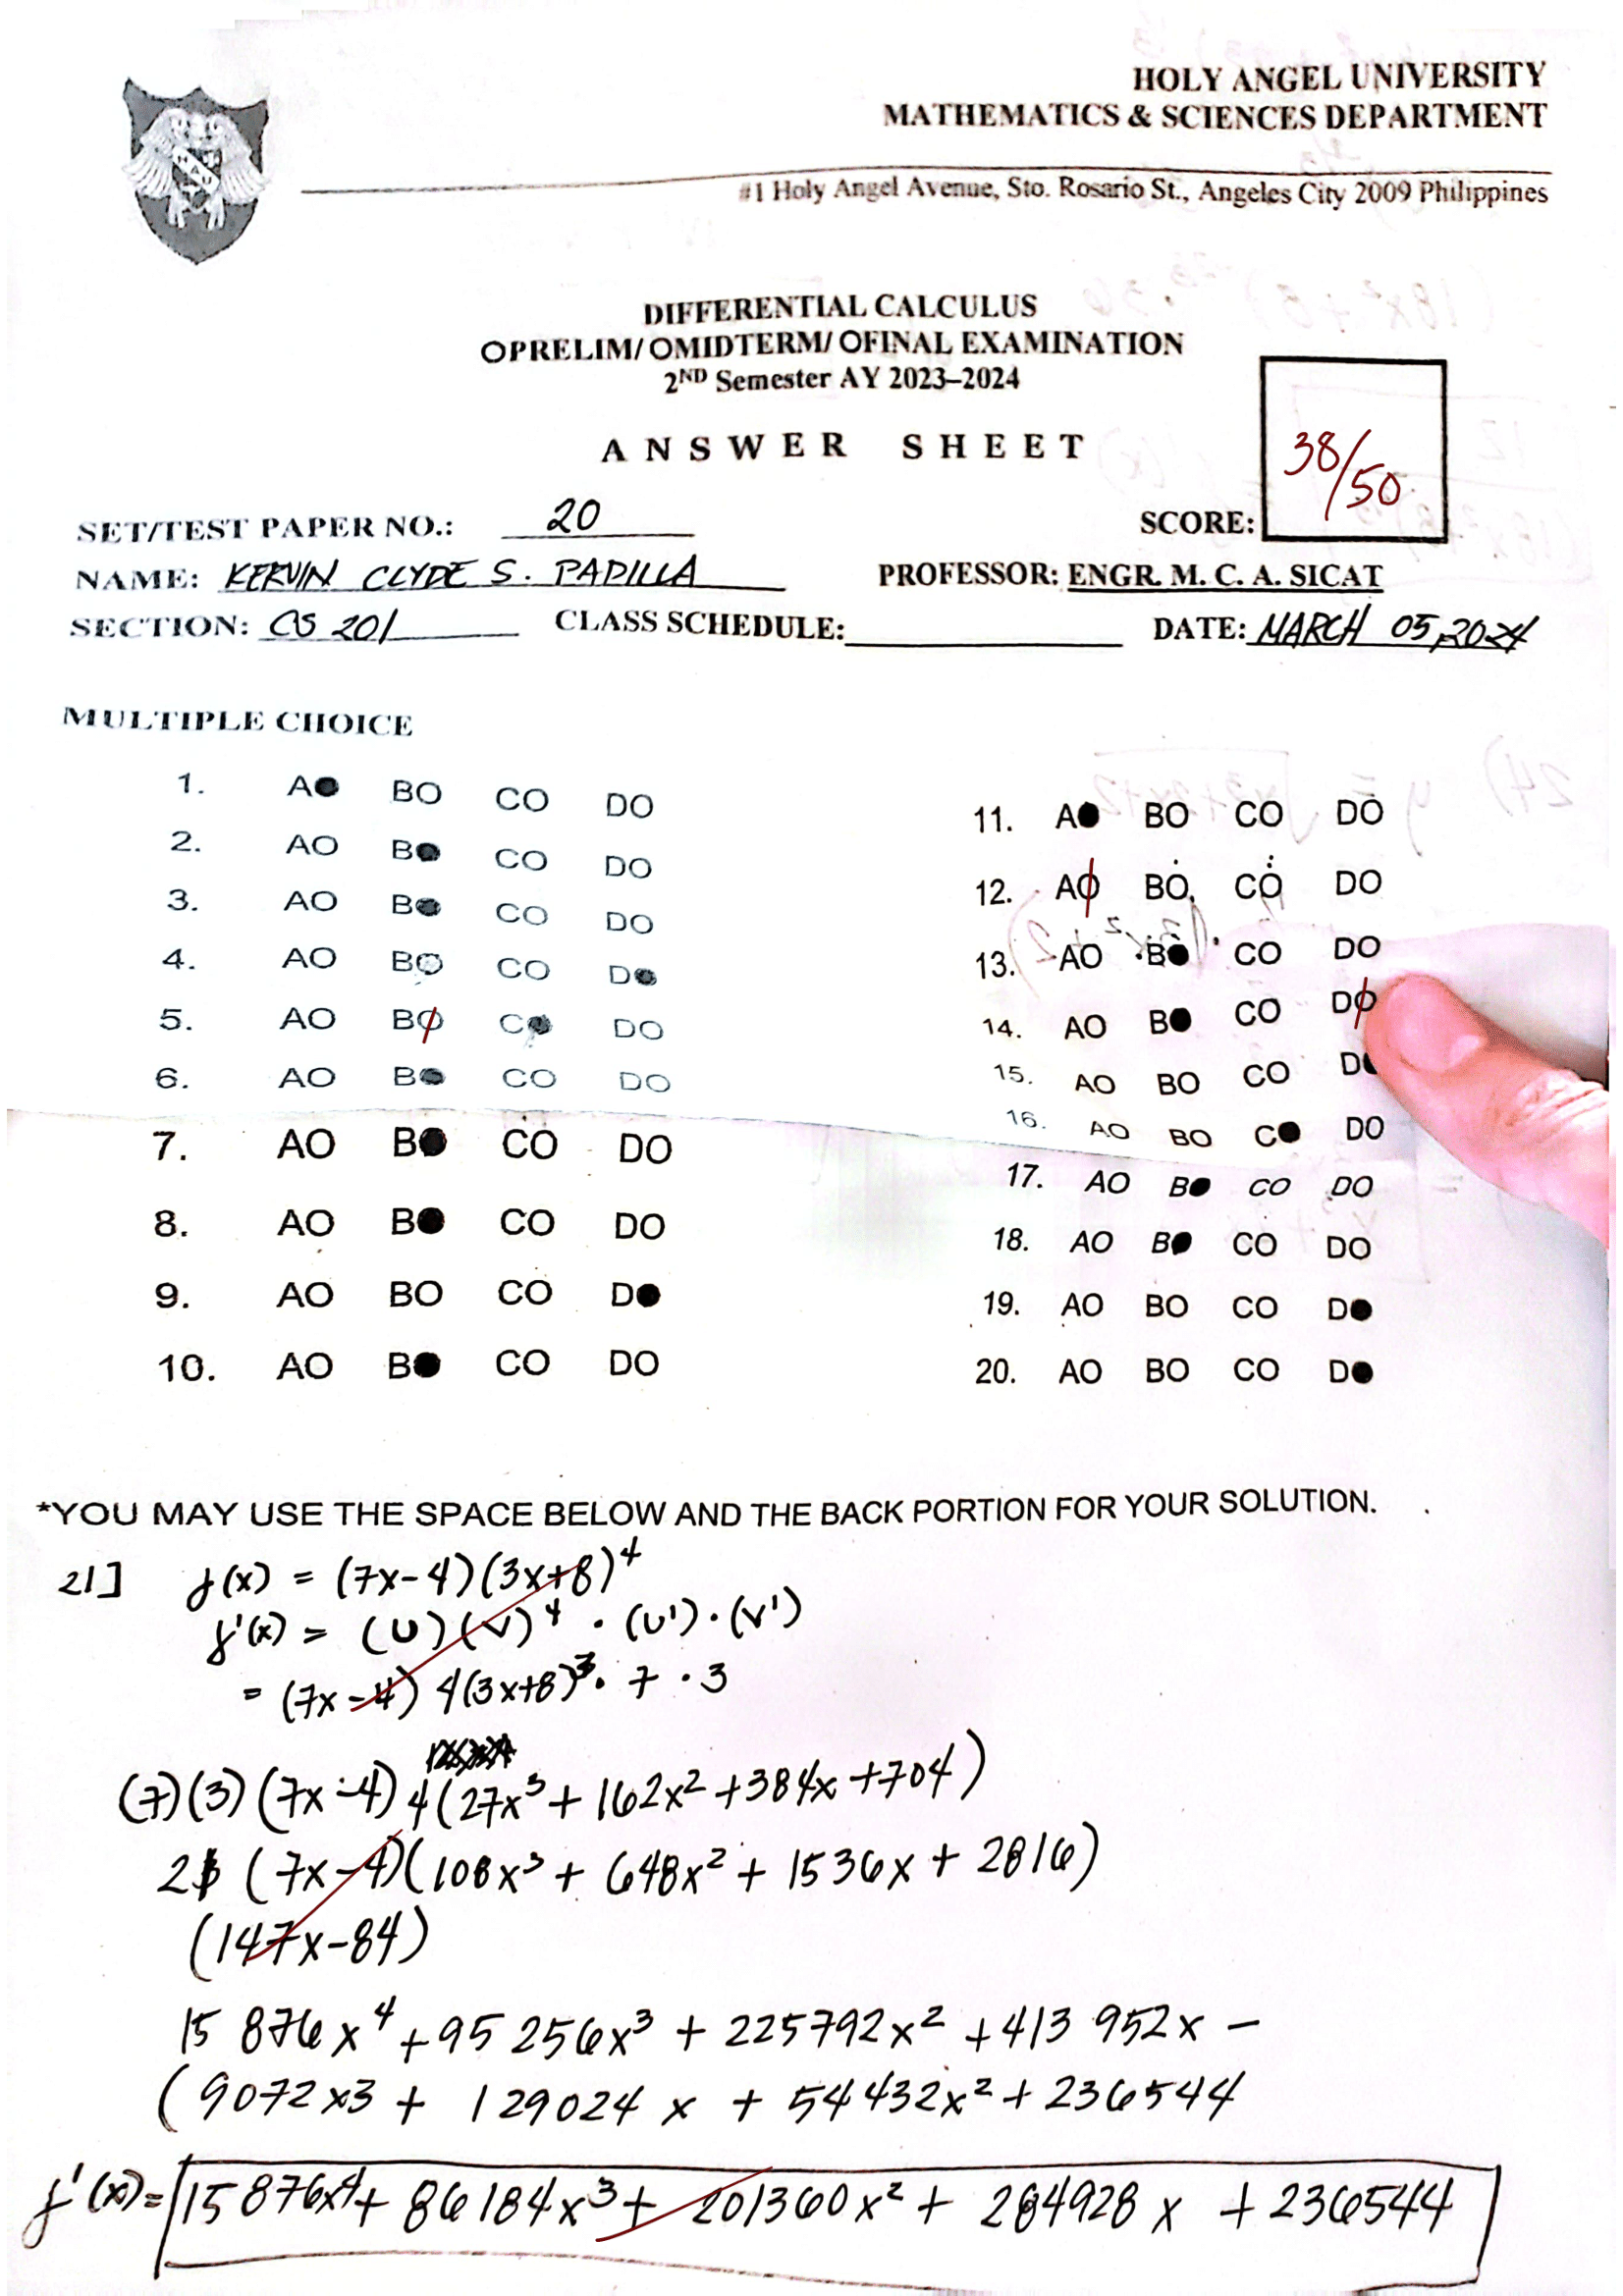 HOLY ANGEL UNIVERSITY
MATHEMATICS & SCIENCES DEPARTMENT
#1 Holy Angel Avenue, Sto. Rosario St., Angeles City 2009 Philippines
DIFFERENTIAL CALCULUS
OPRELIM/ OMIDTERM/ OFINAL EXAMINATION
2ND Semester AY 2023–2024
ANSWER SHEET
38/50
SET/TEST PAPER NO.: 20 SCORE:
NAME: KERVIN CLYDE S. PADILLA PROFESSOR: ENGR. M. C. A. SICAT
SECTION: CS 201 CLASS SCHEDULE: DATE: MARCH 05, 2024
MULTIPLE CHOICE
1. A● BO CO DO
2. AO B● CO DO
3. AO B● CO DO
4. AO BO CO D●
5. AO BO C● DO
6. AO B● CO DO
7. AO B● CO DO
8. AO B● CO DO
9. AO BO CO D●
10. AO B● CO DO
11. A● BO CO DO
12. AO BO CO DO
13. AO B● CO DO
14. AO B● CO DO
15. AO BO CO D●
16. AO BO C● DO
17. AO B● CO DO
18. AO B● CO DO
19. AO BO CO D●
20. AO BO CO D●
*YOU MAY USE THE SPACE BELOW AND THE BACK PORTION FOR YOUR SOLUTION.
21] f(x) = (7x-4)(3x+8)^4
f'(x) = (U)(V)^4 · (U')·(V')
= (7x-4) 4(3x+8)^3 · 7 · 3
(7)(3)(7x-4) 4(27x^3 + 162x^2 + 384x + 704)
21 (7x-4)(108x^3 + 648x^2 + 1536x + 2816)
(147x-84)
15 876x^4 + 95 256x^3 + 225792x^2 + 413 952x -
(9072x3 + 129024x + 54432x^2 + 236544
f'(x)= 15876x^4 + 86184x^3 + 201360x^2 + 284928x + 236544